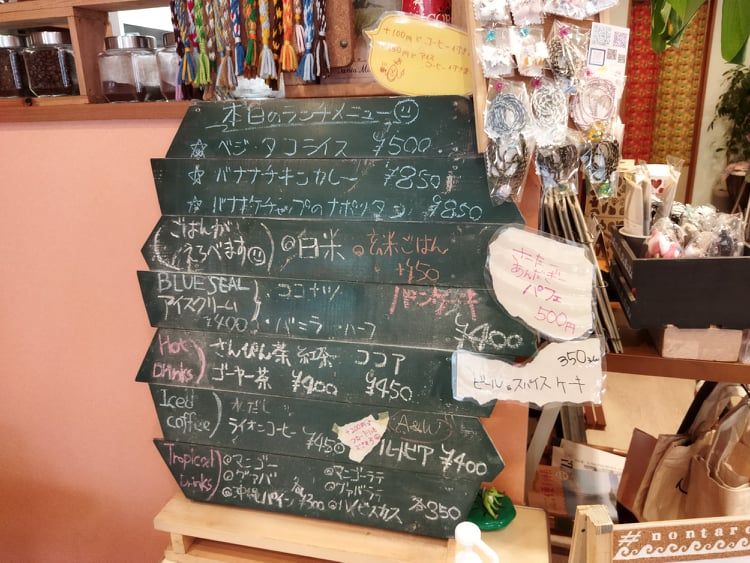 +100円でコーヒー付き
本日のランチメニュー
☆ ベジ・タコライス ¥500
☆ バナナチキンカレー ¥850
☆ バナナケチャップのナポリタン ¥850
ごはんが えらべます
白米
玄米ごはん +¥50
さーたー あんだぎー パフェ 500円
BLUE SEAL アイスクリーム
¥400
ココナツ
・バニラ ・ハーフ
パンケーキ ¥400
Hot Drinks
さんぴん茶 紅茶 ココア
ゴーヤー茶 ¥400 ¥450
350
ビール スパイスケーキ
Iced coffee
水だし
ライオンコーヒー ¥450
+100円で
A&W
ルートビア ¥400
Tropical Drinks
マンゴー
グァバ
沖縄パイン ¥300
マンゴーラテ
グァバラテ
ハイビスカス
各350
# nontaro